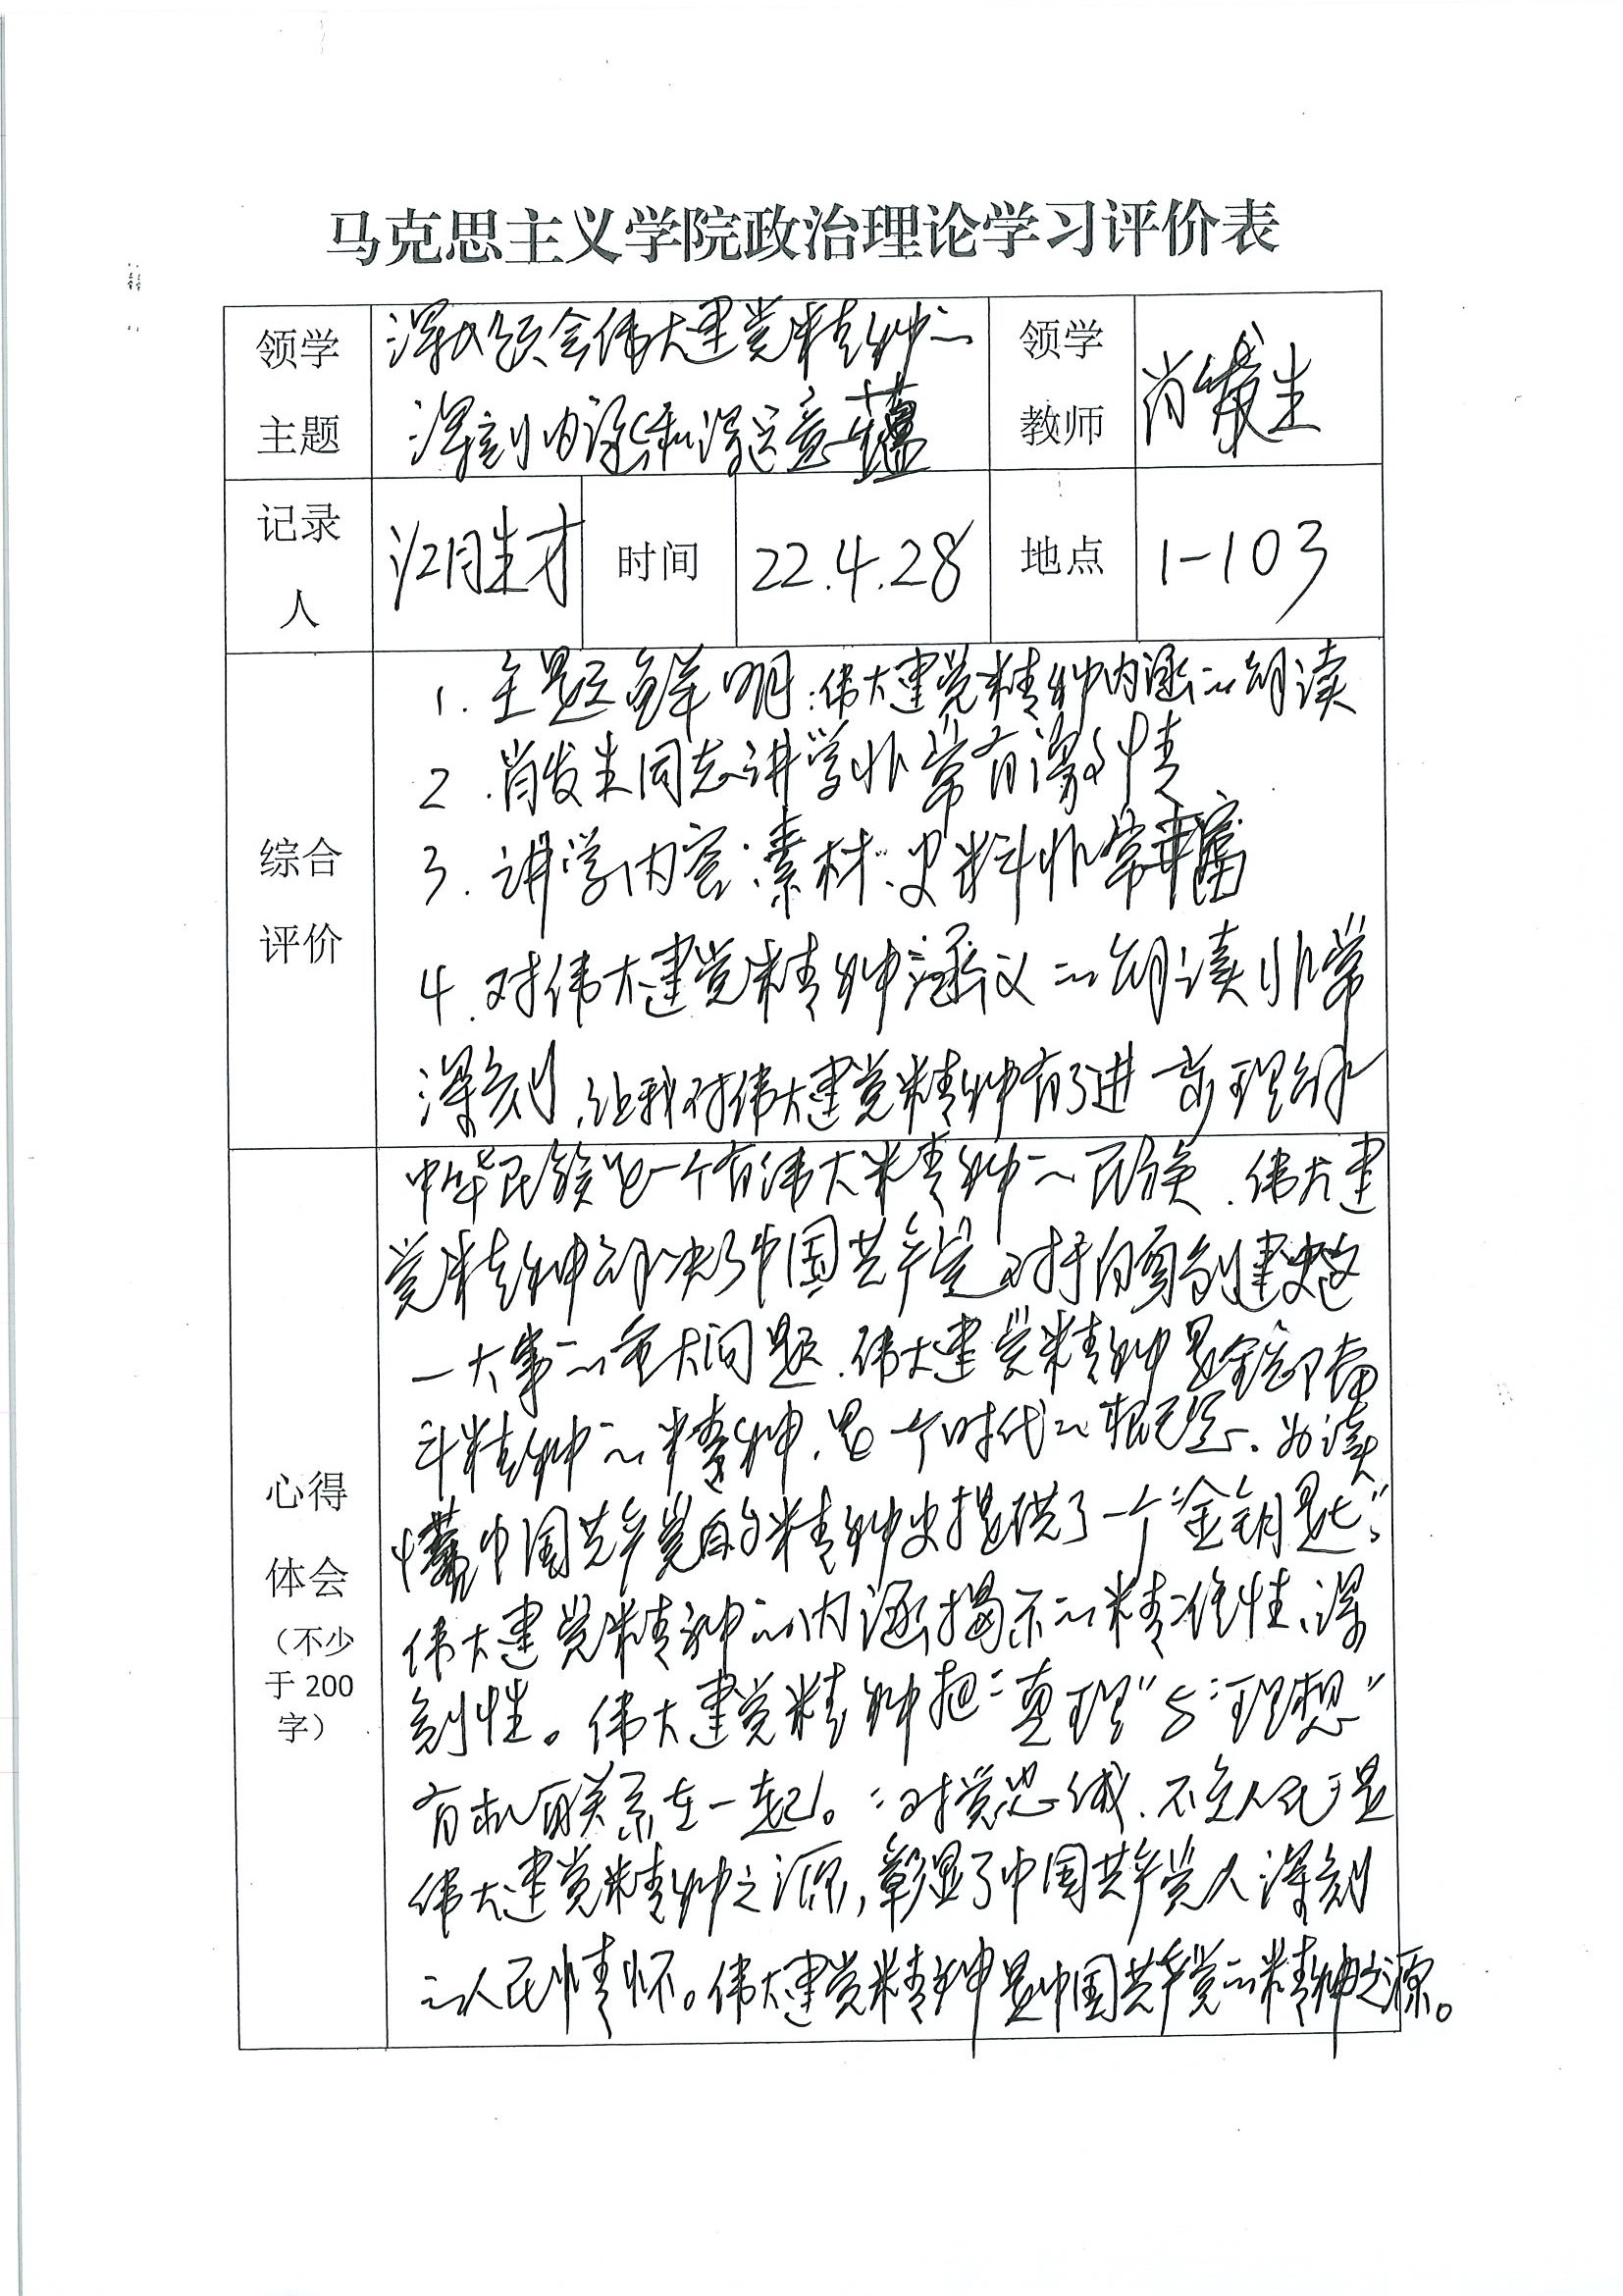 马克思主义学院政治理论学习评价表
领学主题
深入领会伟大建党精神的
深刻内涵和深远意蕴
领学教师
肖发生
记录人
江月生才
时间
22.4.28
地点
1-103
综合评价
1. 主题鲜明:伟大建党精神内涵的解读
2. 肖发生同志讲学非常有激情
3. 讲学内容、素材、史料非常丰富
4. 对伟大建党精神涵义的解读非常
深刻,让我对伟大建党精神有了进一步理解
心得体会
(不少于200字)
中华民族是一个有伟大精神的民族、伟大建
党精神解决了中国共产党对于自身创建史这
一大事的重大问题、伟大建党精神是
斗精神的精神、是一个时代的、为读
懂中国共产党的精神史提供了一个“金钥匙”。
伟大建党精神的内涵揭示的精准性、深
刻性。伟大建党精神把“真理”与“理想”
有机联系在一起。“对党忠诚、不负人民”是
伟大建党精神之源,彰显了中国共产党人深刻
的人民情怀。伟大建党精神是中国共产党的精神之源。